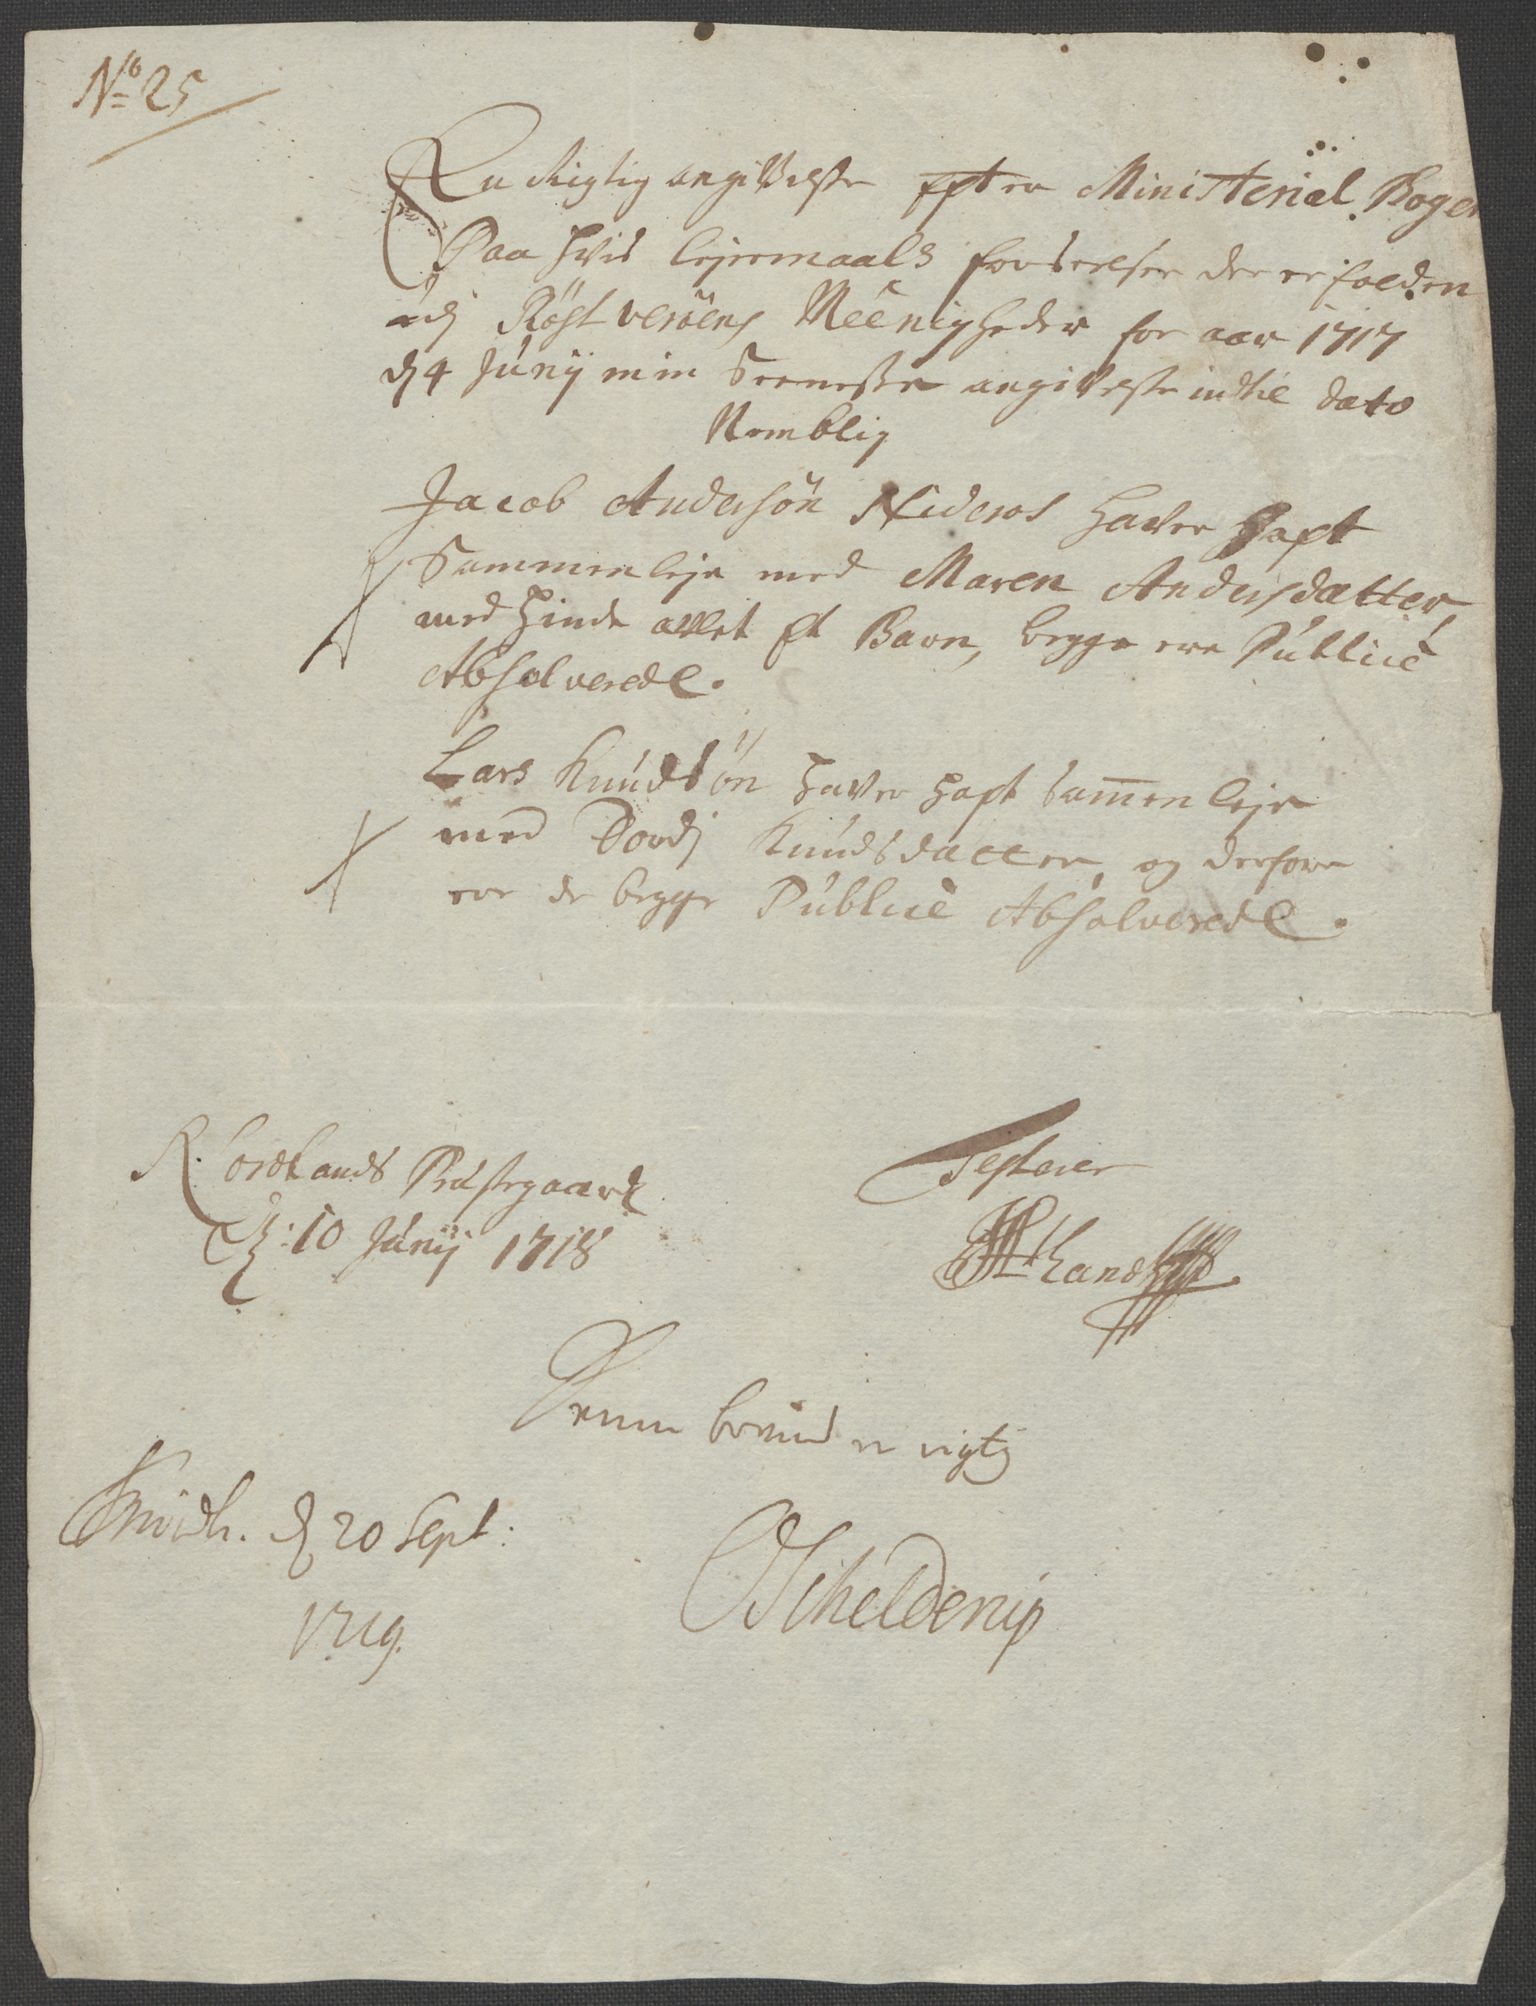 No 25
En Rigtig angiffvelse effter Ministerial Bogen
Paa hvis lejermaals forseelser der er falden
udj Röst veröens Meenigheder for aar 1717
dj 4 Junij min Seeneste angiffvelse indtil dato
Nemblig
Jacob Andersön Nideros haver hafft
Sammenleje med Maren Andersdatter
med hinde avlet et Barn, begge ere Publicè
Absolverede.
Lars Knudsön haver haft sammenleje
med Dordj Knudsdatter, og derfore
ere de begge Publicè Absolverede.
Præstegaard
d: 10 Junij 1718
Testerer
Denne befindes rigtig
Trondh. d 20 Sept:
1719.
Schelderup